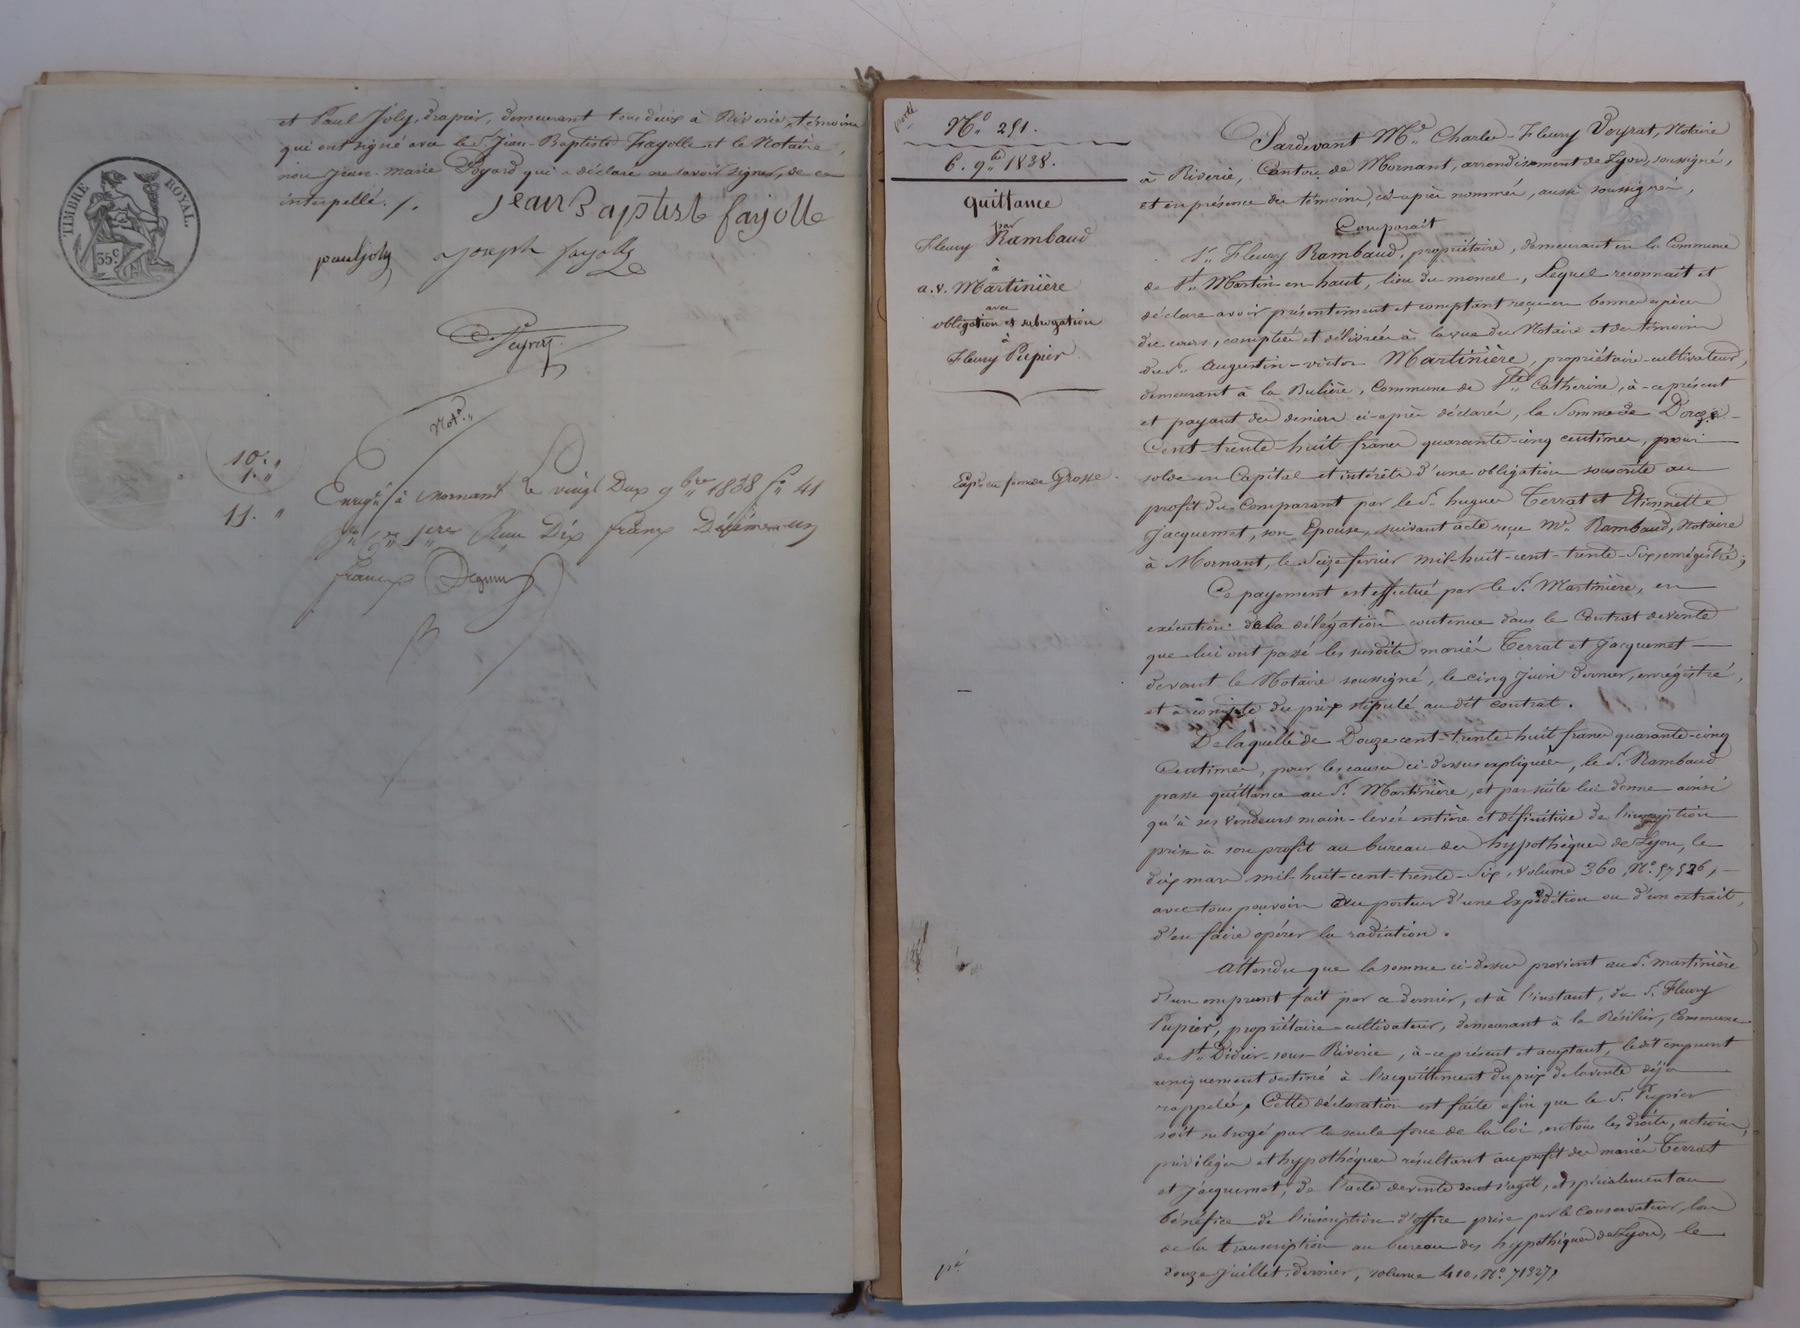 et Paul Joly, drapier, demeurant tous deux à Riverie, témoins
qui ont signé avec le S.r Jean-Baptiste Fayolle et le Notaire,
non Jean-marie Poyard qui a déclaré ne savoir signer, de ce
interpellé. /.
Jean Baptiste fayolle
paul joly joseph fayolle
TIMBRE ROYAL
35.C
Peyrat
Not.re
10. "
1. "
11. "
Enreg.é à Mornant le vingt Deux 9bre 1838 f.o 41
Reçu Dix francs Décime un
franc
porté
N.o 251.
6. 9.bre 1838.
quittance
par
Fleury Rambaud
à
a.v. Martinière
avec
obligation et subrogation
à
Fleury Pupier
Exp.on en forme de Grosse.
Pardevant M.e Charles-Fleury Peyrat, Notaire
à Riverie, Canton de Mornant, arrondissement de Lyon, soussigné,
et en présence des témoins, ci-après nommés, aussi soussignés,
Comparait
S.r Fleury Rambaud, propriétaire, demeurant en la Commune
de S.t Martin-en-haut, lieu du moncel, Lequel reconnait et
déclare avoir présentement et comptant reçu en bonnes espèces
du cours, comptées et délivrées à la vue du Notaire et des témoins
du S.r Augustin-victor Martinière, propriétaire-cultivateur,
demeurant à la Bulière, Commune de S.te Catherine, à-ce présent
et payant des deniers ci-après déclarés, la Somme de Douze-
Cent-trente-huit francs quarante-cinq centimes, pour
solde en Capital et intérêts d'une obligation souscrite au
profit du Comparant par le S.r hugues Terrat et Etiennette
Jacquemet, son Epouse, suivant acte reçu M.e Rambaud, Notaire
à Mornant, le Seize février mil-huit-cent-trente-Six, enregistré;
Ce payement est effectué par le S.r Martinière, en
exécution de la délégation contenue dans le Contrat de vente
que lui ont passé les susdits mariés Terrat et Jacquemet
devant le Notaire soussigné, le cinq Juin dernier, enrégistré,
et à compte du prix stipulé au dit contrat.
De laquelle de Douze cent-trente-huit francs quarante-cinq
Centimes, pour les causes ci-dessus expliquées, le S.r Rambaud
passe quittance au S.r Martinière, et par suite lui donne ainsi
qu'à ses Vendeurs main-levée entière et définitive de l'inscription
prise à son profit au bureau des hypothèques de Lyon, le
dix mars mil-huit-cent-trente-Six, volume 360, N.o 57526,
avec tous pouvoirs au porteur d'une Expédition ou d'un extrait,
d'en faire opérer la radiation.
Attendu que la somme ci-dessus provient au S.r martinière
d'un emprunt fait par ce dernier, et à l'instant, du S.r Fleury
Pupier, propriétaire-cultivateur, demeurant à la Résilier, Commune
de S.t Didier-sous-Riverie, à-ce présent et acceptant, le dit emprunt
uniquement destiné à l'acquittement du prix de la vente déjà
rappelée, Cette déclaration est faite afin que le S.r Pupier
soit subrogé par la seule force de la loi, en tous les droits, actions,
privilèges et hypothèques résultant au profit des mariés Terrat
et Jacquemet, de l'acte de vente dont s'agit, et spécialement au
bénéfice de l'inscription d'office prise par le Conservateur, lors
de la transcription au bureau des hypothèques de Lyon, le
douze Juillet dernier, volume 410, N.o 71327,